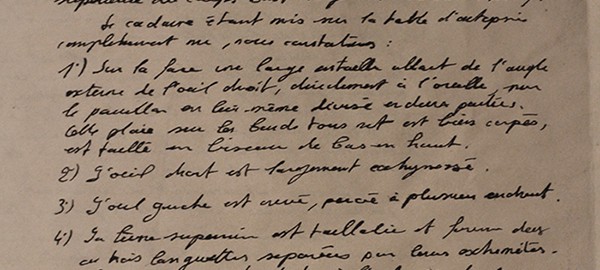 supérieure du corps
Le cadavre étant mis sur la table d'autopsie
complètement nu, nous constatons :
1°) Sur la face une large entaille allant de l'angle
externe de l'oeil droit, directement à l'oreille, sur
le pavillon en lui même divisé en deux parties.
Cette plaie sur les bords tous net est bien coupée,
est taillée en biseau de bas en haut.
2) L'oeil droit est largement ecchymosé.
3) L'oeil gauche est crevé, percée à plusieurs endroit.
4°) La lèvre supérieure est tailladée et forme deux
ou trois languettes séparées par leurs extrémités.